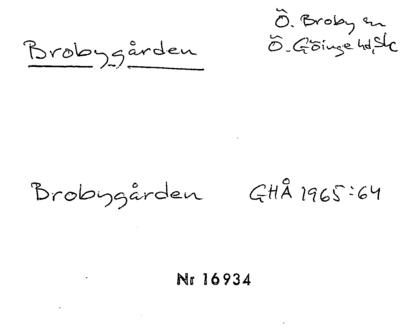 Brobygården
Ö. Broby sn
Ö. Göinge hd, Sk
Brobygården GHÅ 1965:64
Nr 16934